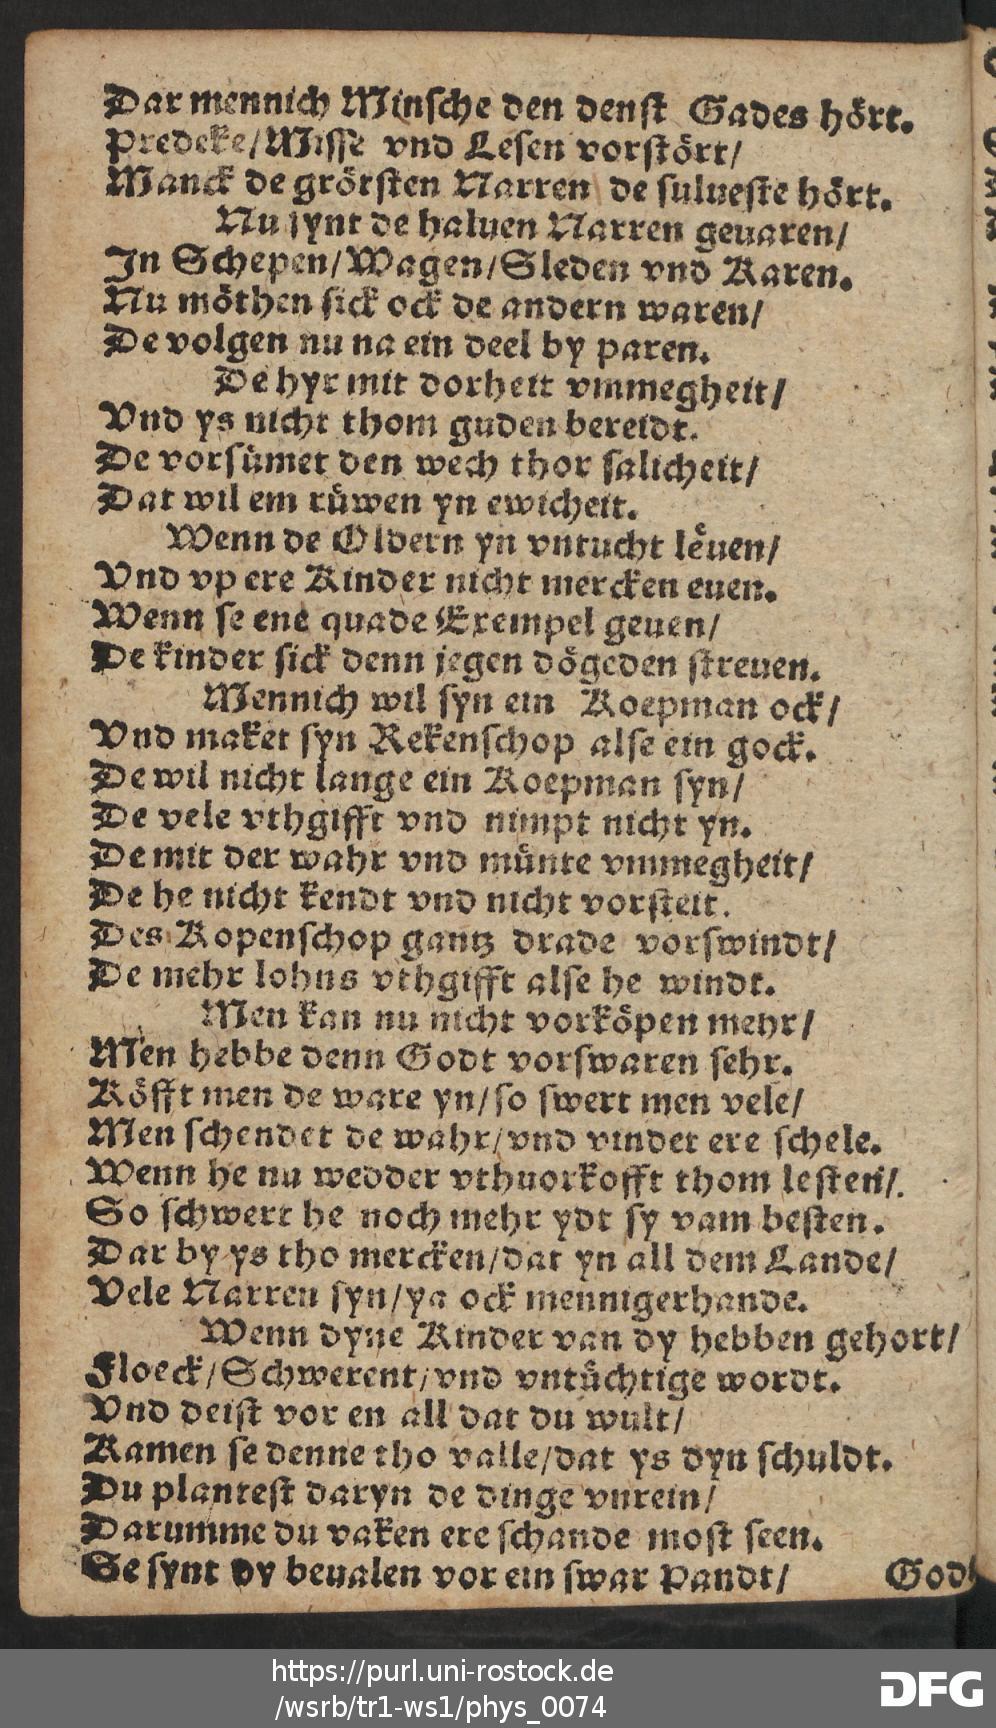 Dar mennich Minsche den denst Gades hört.
Predeke/Misse vnd Lesen vorstört/
Manck de grötsten Narren de sulueste hört.
Nu synt de haluen Narren geuaren/
In Schepen/Wagen/Sleden vnd Karen.
Nu möthen sick ock de andern waren/
De volgen nu na ein deel by paren.
De hyr mit dorheit vmmegheit/
Vnd ys nicht thom guden bereidt.
De vorsümet den wech thor salicheit/
Dat wil em rüwen yn ewicheit.
Wenn de Oldern yn vntucht leuen/
Vnd vp ere Kinder nicht mercken euen.
Wenn se ene quade Exempel geuen/
De kinder sick denn jegen dögeden streuen.
Mennich wil syn ein Koepman ock/
Vnd maket syn Rekenschop alse ein gock.
De wil nicht lange ein Koepman syn/
De vele vthgifft vnd nimpt nicht yn.
De mit der wahr vnd münte vmmegheit/
De he nicht kendt vnd nicht vorsteit.
Des Kopenschop gantz drade vorswindt/
De mehr lohns vthgifft alse he windt.
Men kan nu nicht vorköpen mehr/
Men hebbe denn Godt vorswaren sehr.
Köfft men de ware yn/so swert men vele/
Men schendet de wahr/vnd vindet ere schele.
Wenn he nu wedder vthuorkofft thom lesten/.
So schwert he noch mehr ydt sy vam besten.
Dar by ys tho mercken/dat yn all dem Lande/
Vele Narren syn/ya ock mennigerhande.
Wenn dyne Kinder van dy hebben gehort/
Floeck/Schwerent/vnd vntüchtige wordt.
Vnd deist vor en all dat du wult/
Kamen se denne tho valle/dat ys dyn schuldt.
Du plantest daryn de dinge vnrein/
Darumme du vaken ere schande most seen.
Se synt dy beualen vor ein swar Pandt/
Godt
https://purl.uni-rostock.de
/wsrb/tr1-ws1/phys_0074
DFG